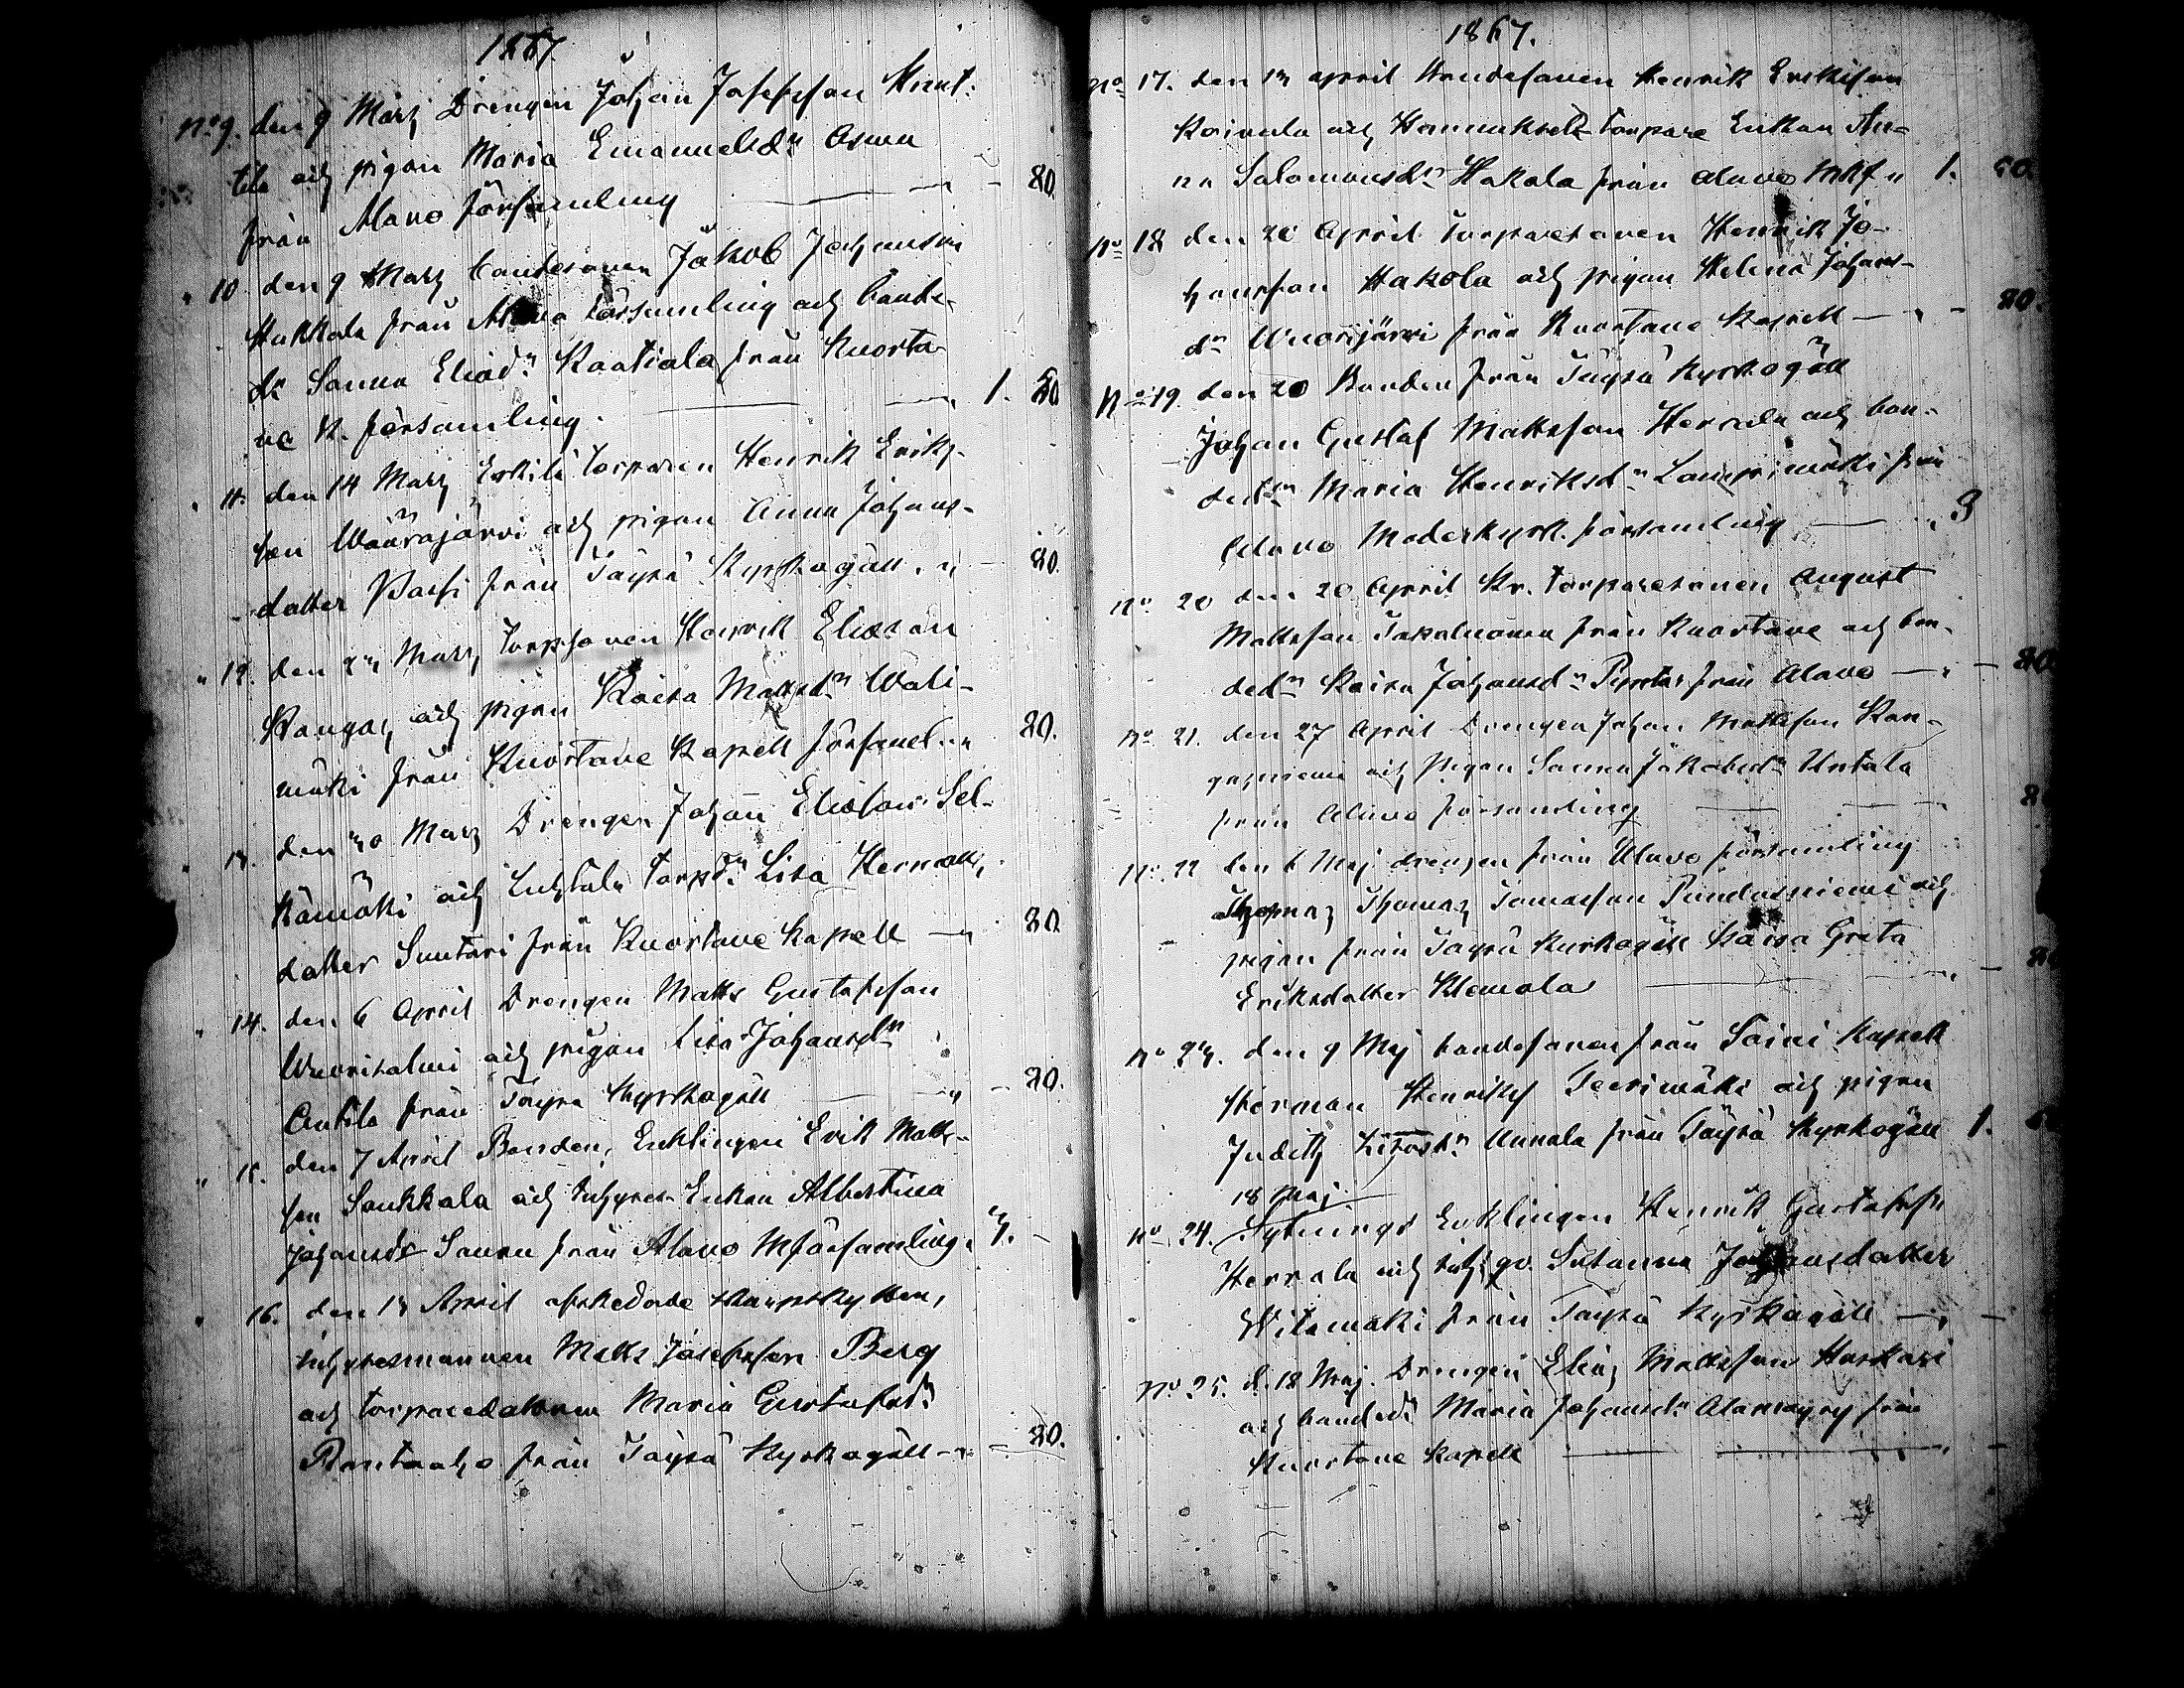 1867
No 9. den 9 Marz Drengen Johan Josefsson Knut-
tila och pigan Maria Emanuelsdr Asun
från Alavo församling — " - 80
" 10 den 9 Marz bondesonen Jakob Johansson
Hukkala från Alavo församling och bonde-
dr Sanna Eliædr Kaatiala från Kuorta-
ne K. församling. — " 1. 80
" 11. den 14 Marz Enkili torparen Henrik Eriks-
son Wäärajärvi och pigan Anna Johans-
datter Passi från Töysä Kyrkogäll. " - 80.
" 12. den Marz torpsonen Henrik Eliæson
Kangas och pigan Kaisa Mattsdr Wali-
mäki från Kuortane Kapell församl. " 80.
" 13. den 30 Marz Drengen Johan Eliæson Sel-
kämäki och torpdr Lisa Herman
datter Suntari från Kuortane Kapell — " 80
" 14. den 6 April Drengen Matts Gustafsson
Wuorisalmi och pigan Lisa Johansdr
Antila från Töysä Kyrkogäll — " - 80.
" 15. den 7 April Bonden, Enklingen Erik Matts-
son Saukkala och Enkan Albertina
Johansdr Sauru från Alavo Mförsamling " 3. -
" 16. den 13 April afskedade skarpskytten,
inhysesmannen Matts Josefsson Berg
och torparedattren Maria Gustafsdr
Rantaaho från Töysä Kyrkogäll - " - 80.
1867.
No 17. den 13 april Bondesonen Henrik Erikisson
Koivula och torpare Enkan An-
na Salomonsdr Hakola från Alavo Mkf " 1. 80.
No 18 den 20 April torparesonen Henrik Jo-
hansson Hakola och pigan Helena Johans-
dr Wuorijärvi från Kuortane Kapell — " - 80.
No 19. den 20 Bonden från Töysä Kyrkogäll
Johan Gustaf Mattsson Herrala och bon-
dedr Maria Henriksdr Lampimäki från
Alavo Moderkyrk. församling — " 3
No 20 den 20 April Kr. torparesonen August
Mattsson från Kuortane och bon-
dedr Kaisa Johansdr från Alavo — " - 80
No 21. den 27 April Drengen Johan Mattsson Kan-
gasniemi och pigan Sanna Jakobsdr Untala
från Alavo församling — 8
No 22 den 6 Maj drengen från Alavo församling
Thomas Tomasson och
pigan från Töysä Kyrkogäll Kaisa Greta
Eriksdatter Klemola — " - 8
No 23. den 9 Maj bondesonen från Soini Kapell
Herman Henriks Teerimäki och pigan
Judith Unnala från Töysä Kyrkogäll 1.
18 Maj
No 24. Sytnings Enklingen Henrik Gustafss
Herrala och Susanna Johansdatter
Witamäki från Töysä Kyrkogäll — " -
No 25. d. 18 Maj. Drengen Elias Mattsson Haskari
och bondedr Maria Johansdr Alamäyry från
Kuortane Kapell — " -